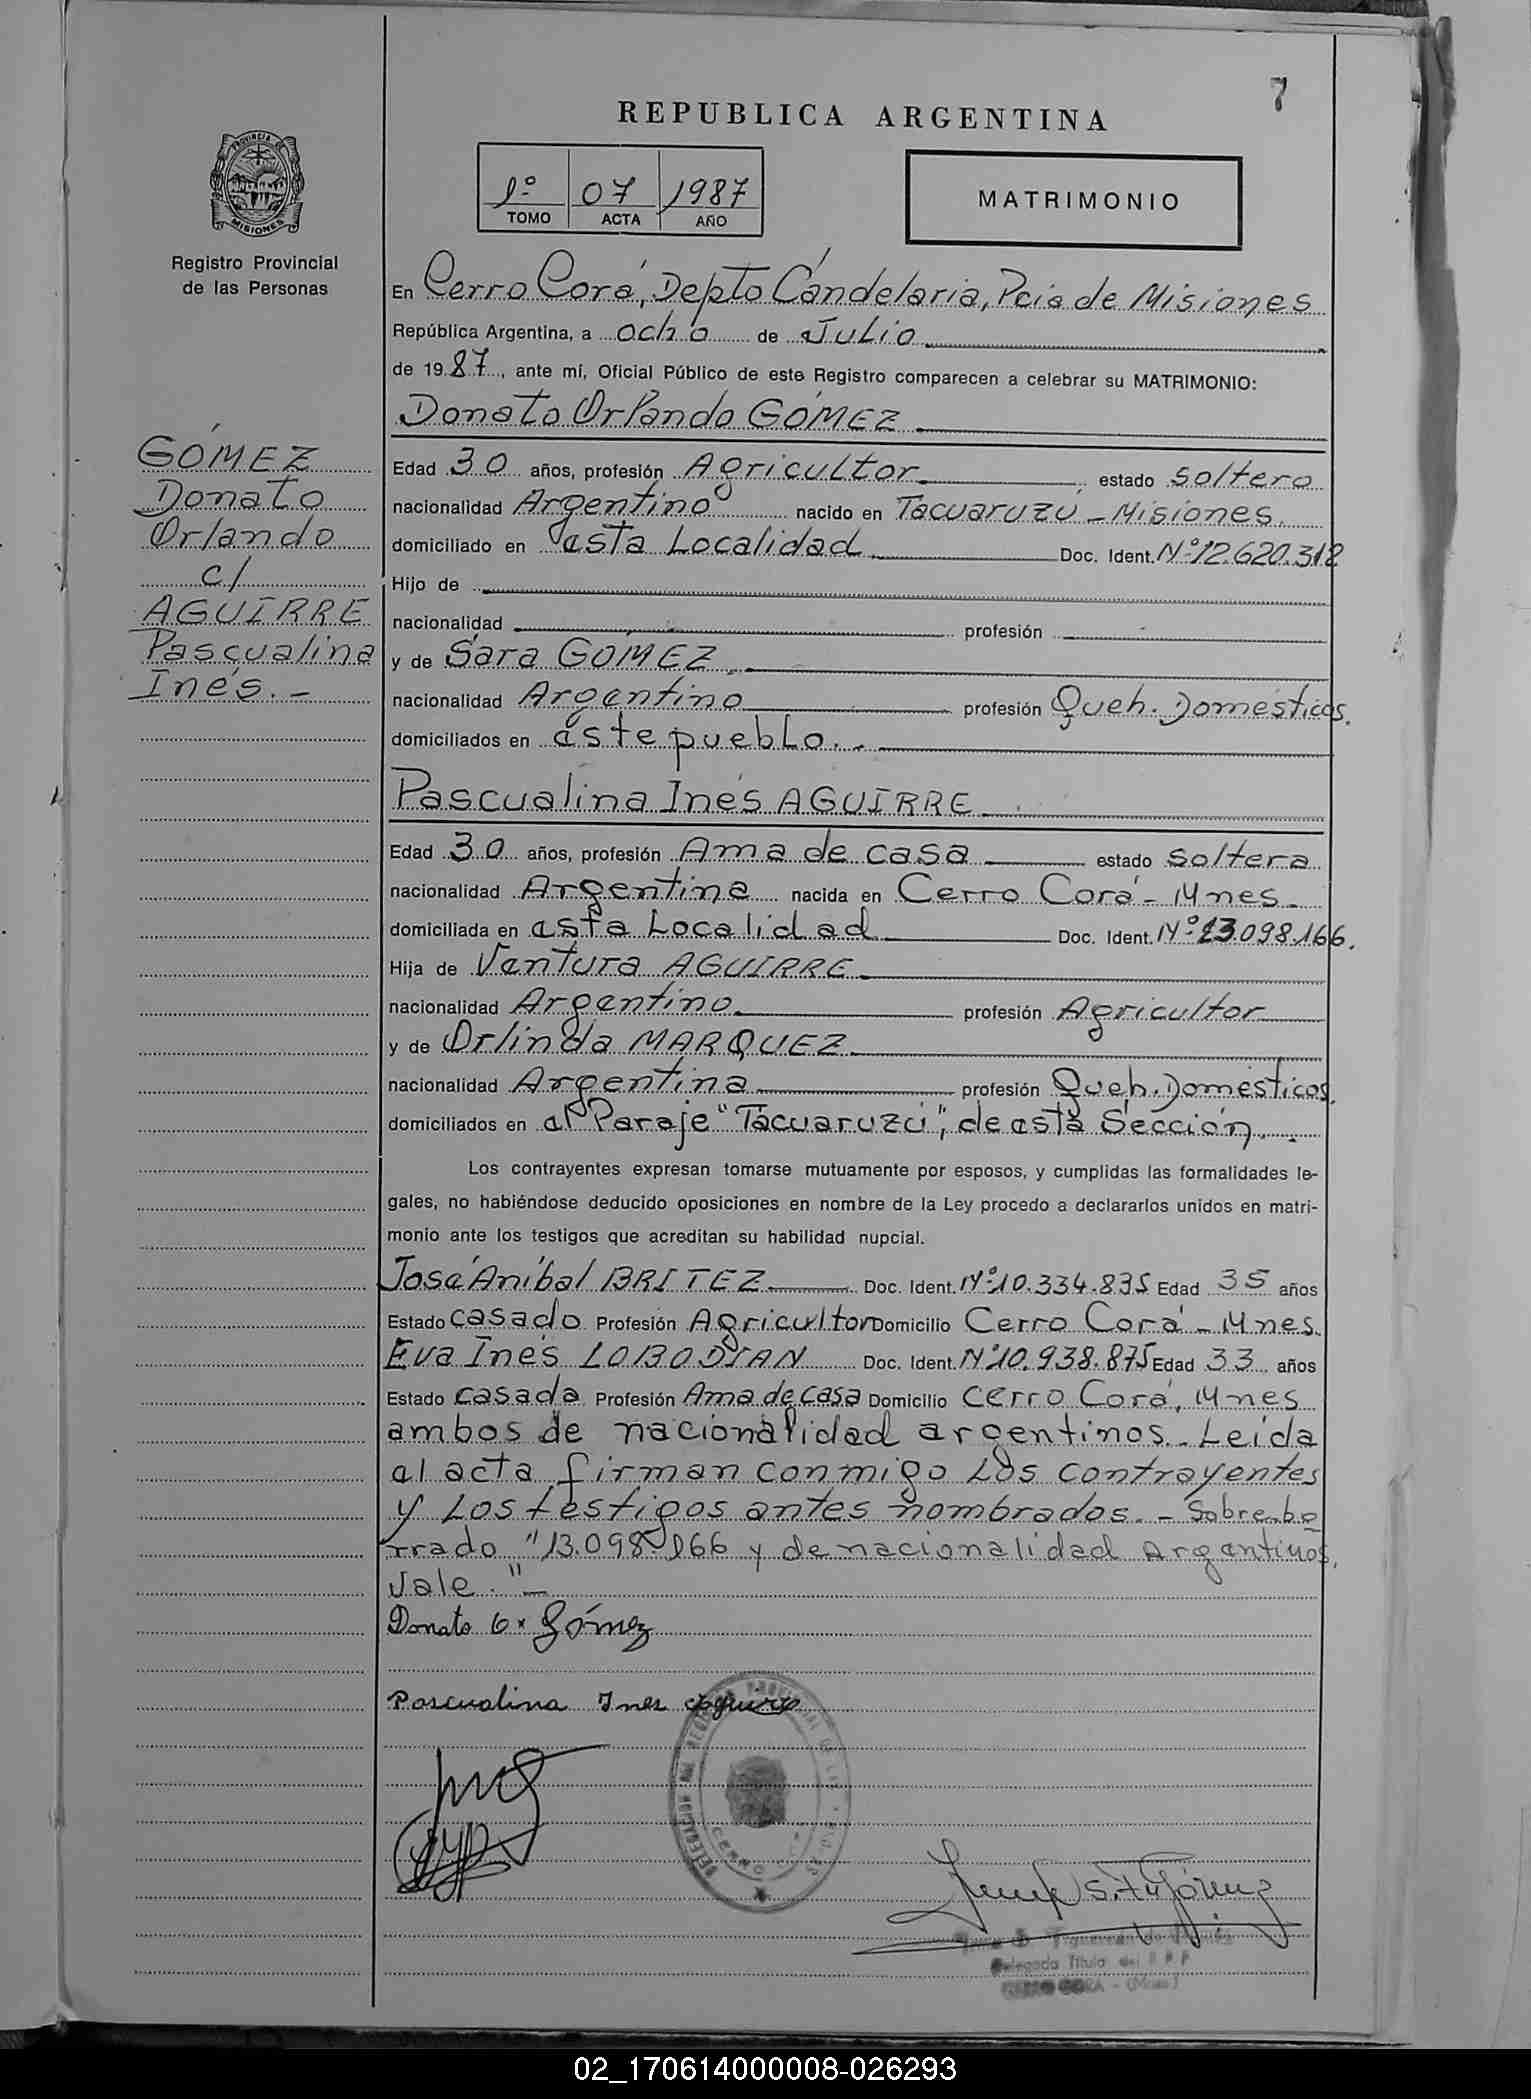 7
REPUBLICA ARGENTINA
PROVINCIA DE
MISIONES
1º 07 1987
TOMO ACTA AÑO
MATRIMONIO
Registro Provincial
de las Personas
En Cerro Corá, Depto Candelaria, Pcia de Misiones
República Argentina, a ocho de Julio
de 1987, ante mí, Oficial Público de este Registro comparecen a celebrar su MATRIMONIO:
Donato Orlando GÓMEZ
GÓMEZ
Donato
Orlando
c/
AGUIRRE
Pascualina
Inés.-
Edad 30 años, profesión Agricultor estado soltero
nacionalidad Argentino nacido en Tacuaruzú - Misiones.
domiciliado en esta Localidad Doc. Ident. Nº 12.620.312
Hijo de
nacionalidad profesión
y de Sara GÓMEZ
nacionalidad Argentino profesión Queh. Domésticos.
domiciliados en este pueblo.-
Pascualina Inés AGUIRRE
Edad 30 años, profesión Ama de casa estado soltera
nacionalidad Argentina nacida en Cerro Corá - Mnes.
domiciliada en esta Localidad Doc. Ident. Nº 13.098.166.
Hija de Ventura AGUIRRE
nacionalidad Argentino profesión Agricultor
y de Orlinda MARQUEZ
nacionalidad Argentina profesión Queh. Domésticos.
domiciliados en el Paraje "Tacuaruzú", de esta Sección.
Los contrayentes expresan tomarse mutuamente por esposos, y cumplidas las formalidades le-
gales, no habiéndose deducido oposiciones en nombre de la Ley procedo a declararlos unidos en matri-
monio ante los testigos que acreditan su habilidad nupcial.
José Aníbal BRITEZ Doc. Ident. Nº 10.334.835 Edad 35 años
Estado casado Profesión Agricultor Domicilio Cerro Corá - Mnes.
Eva Inés LOBODIAN Doc. Ident. Nº 10.938.875 Edad 33 años
Estado casada Profesión Ama de casa Domicilio Cerro Corá, Mnes
ambos de nacionalidad argentinos.- Leida
el acta firman conmigo los contrayentes
y los testigos antes nombrados.- Sobre bo
rrado "13.098.166 y de nacionalidad Argentinos,
Vale."-
Donato O. Gómez
Pascualina Ines Aguirre
CERRO
Delegada Titular del R P P
CERRO CORA - (Mnes)
02_170614000008-026293